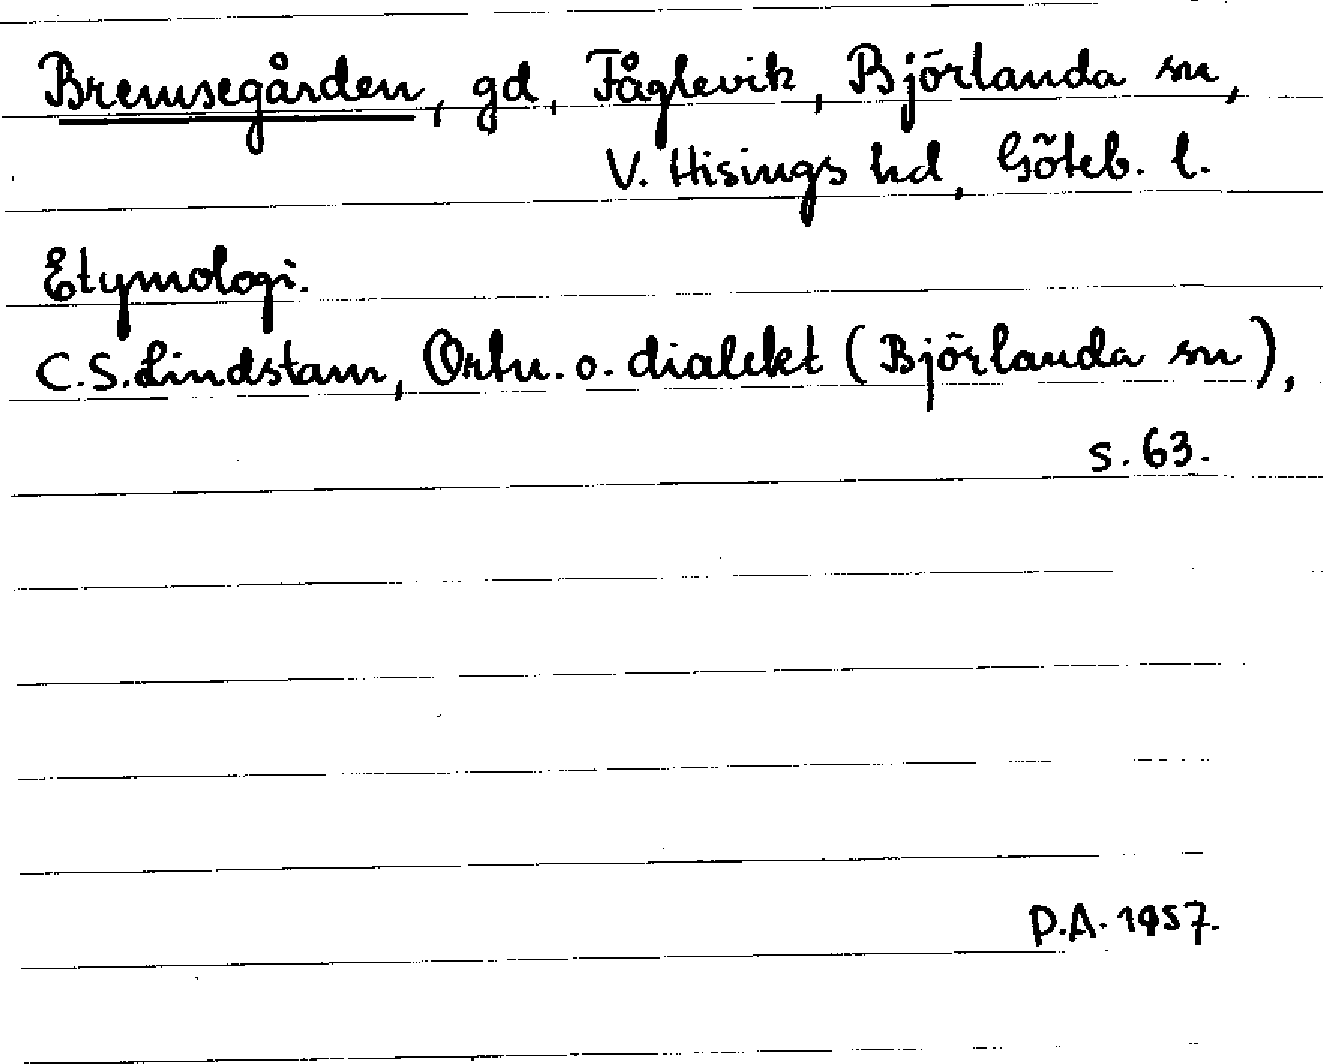 Bremsegården, gd, Fåglevik, Björlanda sn,
V. Hisings hd, Göteb. l.
Etymologi.
C.S. Lindstam, Ortn. o. dialekt (Björlanda sn),
s. 63.
P.A. 1957.